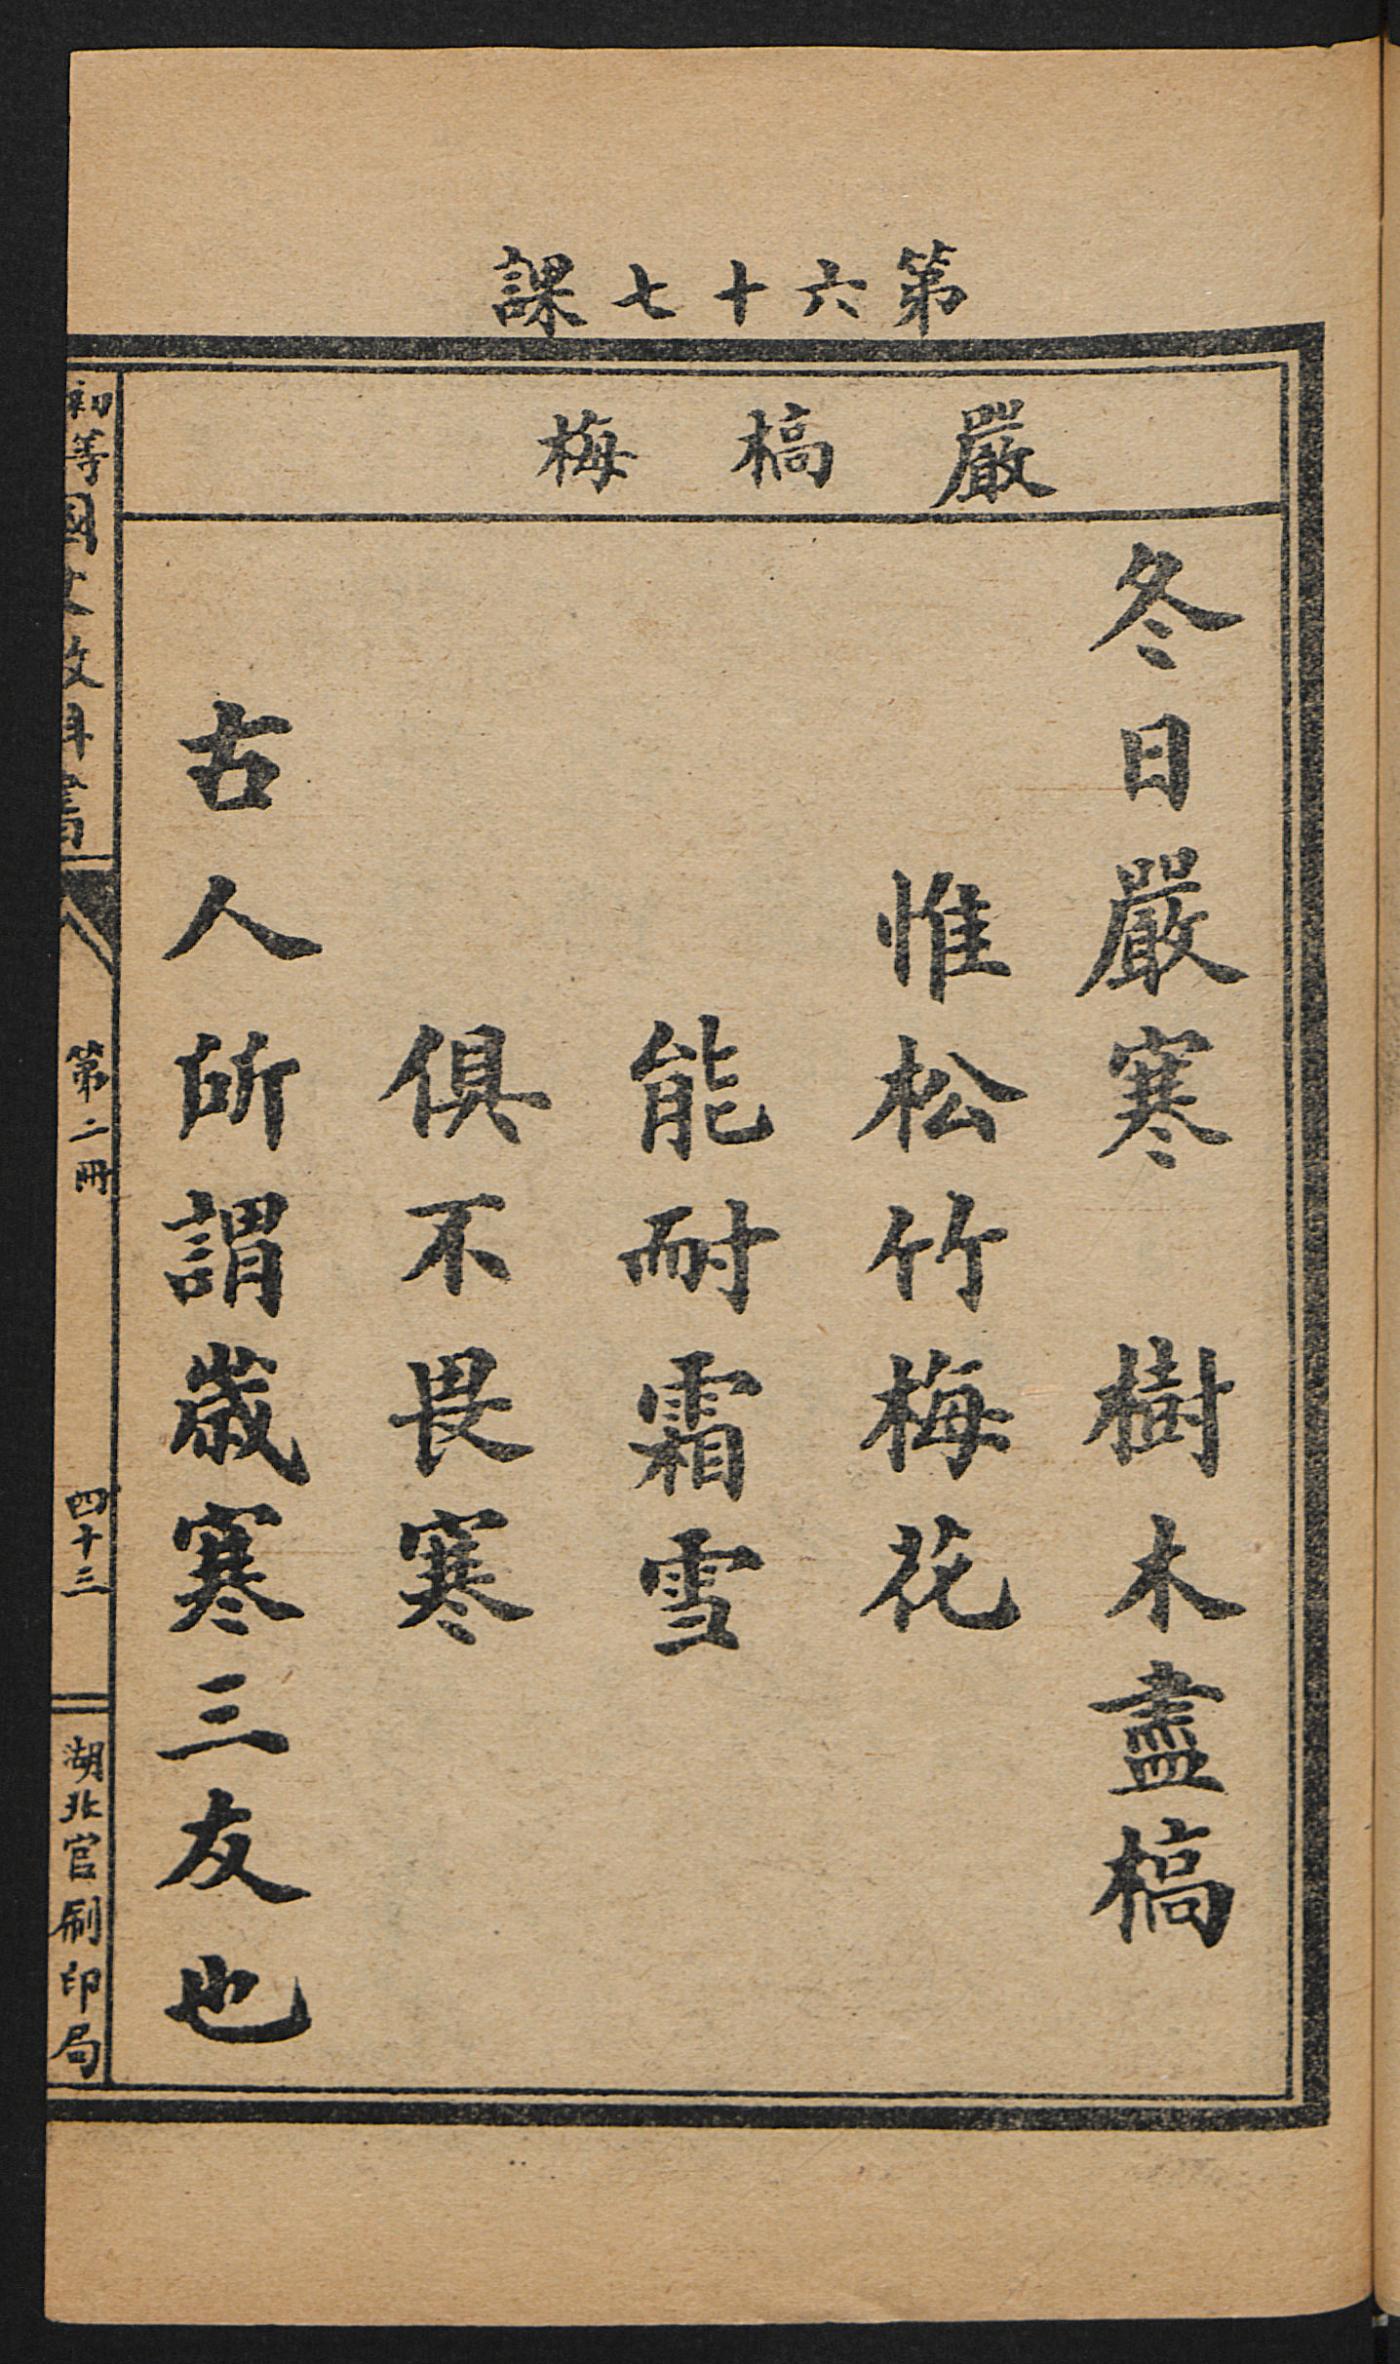 第六十七課
嚴 槁 梅
冬日嚴寒 樹木盡槁
惟松竹梅花
能耐霜雪
俱不畏寒
古人所謂歲寒三友也
初等國文教科書
第二冊
四十三
湖北官刷印局